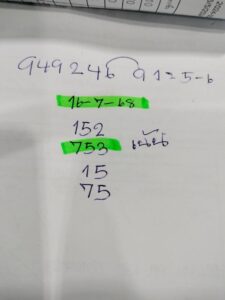 949246 91=5-6
16-7-68
152
753 เน้น
15
75